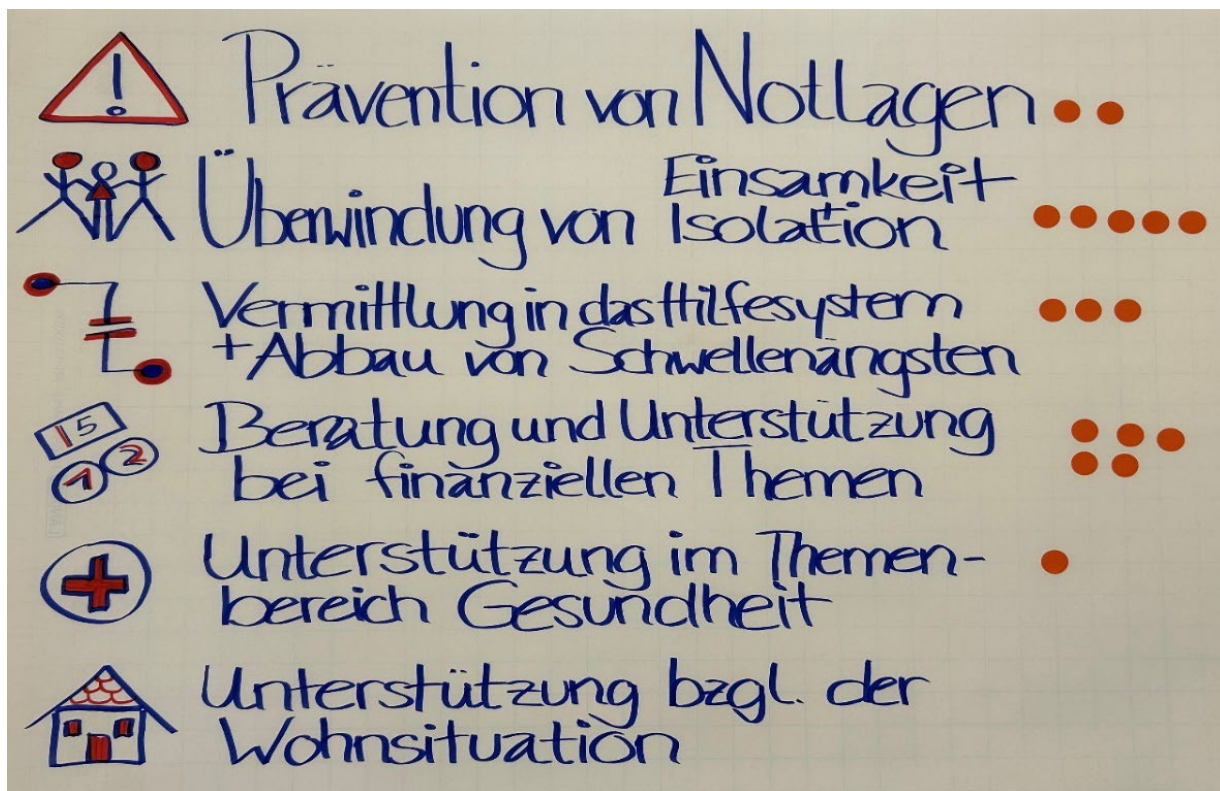 !
Prävention von Notlagen
Überwindung von Einsamkeit + Isolation
Vermittlung in das Hilfesystem
+ Abbau von Schwellenängsten
15
1 2
Beratung und Unterstützung
bei finanziellen Themen
Unterstützung im Themen-
bereich Gesundheit
Unterstützung bzgl. der
Wohnsituation